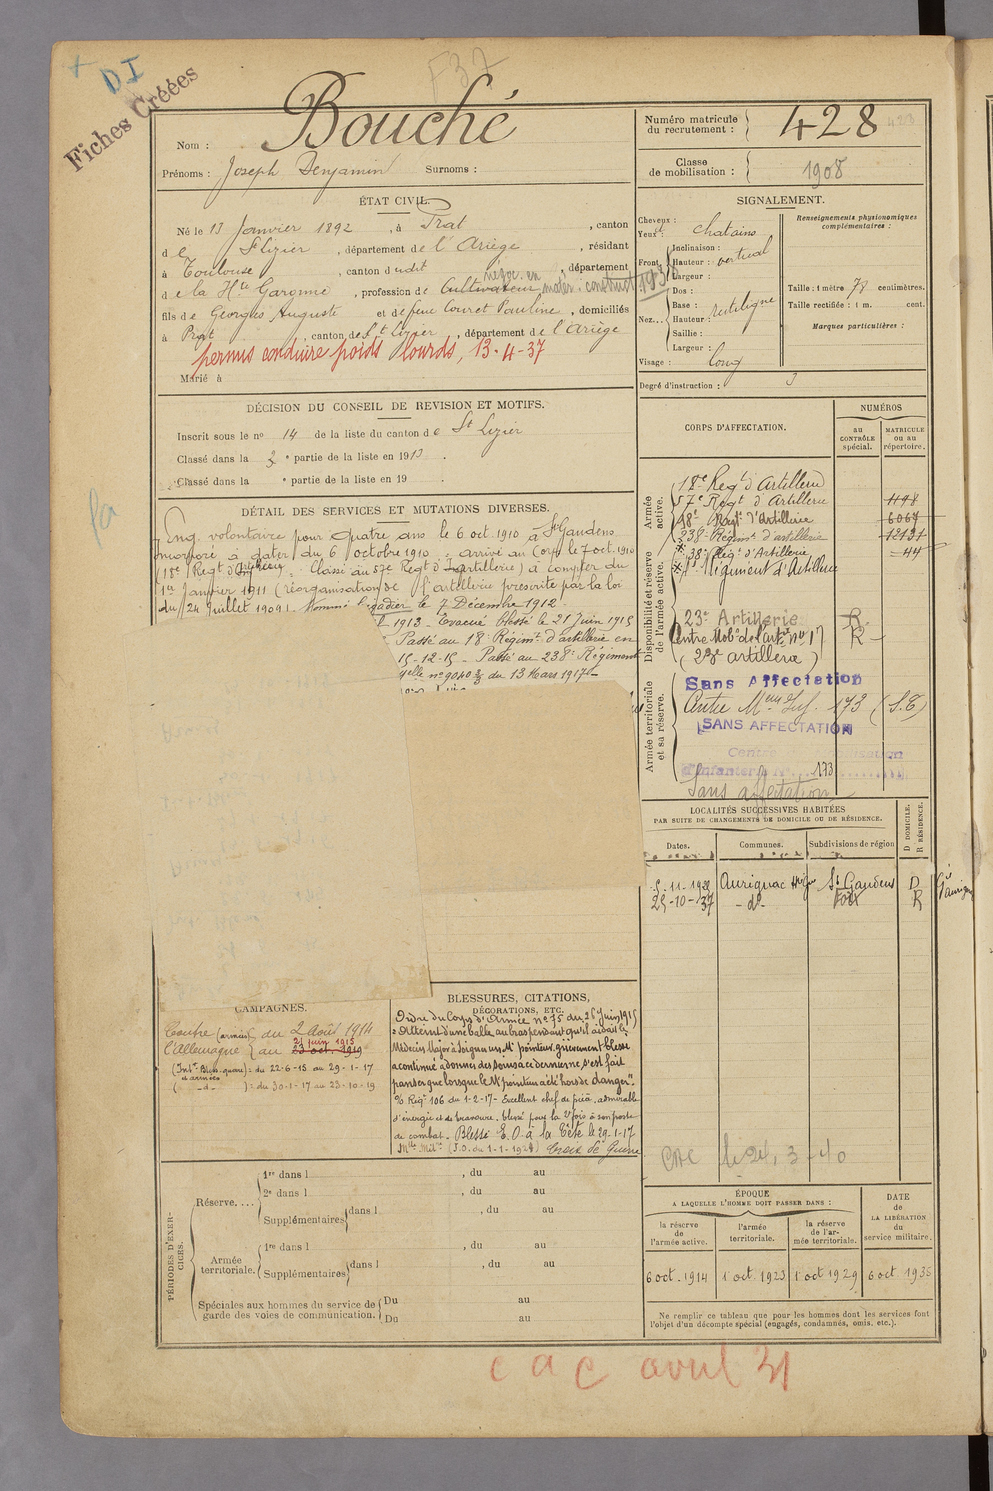 + DI
F37
Fiches Créées
Nom : Bouché
Prénoms : Joseph Benjamin Surnoms :
ÉTAT CIVIL.
Né le 13 Janvier 1892, à Prat, canton
de St Lizier, département de l'Ariège, résidant
à Toulouse, canton dudit, département
négoc. en matér. construct 1938
de la Hte Garonne, profession de Cultivateur
fils de Georges Auguste et de feue Couret Pauline, domiciliés
à Prat, canton de St Lizier, département de l'Ariège
permis conduire poids lourds, 13-4-37
Marié à
DÉCISION DU CONSEIL DE REVISION ET MOTIFS.
Inscrit sous le no 14 de la liste du canton de St Lizier
Classé dans la 3 e partie de la liste en 1913.
Classé dans la e partie de la liste en 19 .
DÉTAIL DES SERVICES ET MUTATIONS DIVERSES.
Eng. volontaire pour quatre ans le 6 oct. 1910 à St Gaudens
incorporé à dater du 6 octobre 1910 arrivé au corps le 7 oct. 1910
(18e Regt d'Artillerie). Classé au 57e Regt d'Artillerie) à compter du
1er Janvier 1911 (réorganisation de l'artillerie prescrite par la loi
du 24 Juillet 1909). Nommé brigadier le 7 Décembre 1912.
1913 - Evacué blessé le 21 Juin 1915
Passé au 18e Régimt d'artillerie en
15-12-15 - Passé au 238e Régiment
no 9040 du 13 Mars 1917
CAMPAGNES.
Contre (armées) du 2 Août 1914
l'Allemagne au 23 oct. 1919
21 juin 1915
(Intr Bless. guerre) = du 22-6-15 au 29-1-17
et armées
( -d- ) = du 30-1-17 au 23-10-19
BLESSURES, CITATIONS,
DÉCORATIONS, ETC.
Ordre du Corps d'Armée no 75 du 26 Juin 1915
"Atteint d'une balle au bras pendant qu'il aidait le
Médecin Major à soigner un Mtre pointeur grièvement blessé
a continué à donner des soins à ce dernier, ne s'est fait
panser que lorsque le Mtre pointeur a été hors de danger".
O/ Régt 106 du 1-2-17 - Excellent chef de pièce, admirable
d'énergie et de bravoure, blessé pour la 2e fois à son poste
de combat. Blessé E.O. à la tête le 29-1-17
Mlle Milre (J.O. du 1-1-1924) Croix de Guerre
PÉRIODES D'EXERCICES.
Réserve....
1re dans l , du au
2e dans l , du au
Supplémentaires dans l , du au
Armée territoriale.
1re dans l , du au
Supplémentaires dans l , du au
Spéciales aux hommes du service de garde des voies de communication.
Du au
Du au
Numéro matricule du recrutement : 428
423
Classe de mobilisation : 1908
SIGNALEMENT.
Cheveux : chatains
Yeux :
Front
Inclinaison : vertical
Hauteur :
Largeur :
Nez...
Dos : rectiligne
Base :
Hauteur
Saillie :
Largeur :
Visage : long
Renseignements physionomiques complémentaires :
Taille : 1 mètre 78 centimètres.
Taille rectifiée : 1 m. cent.
Marques particulières :
Degré d'instruction : 3
CORPS D'AFFECTATION.
NUMÉROS
au CONTRÔLE spécial.
MATRICULE ou au répertoire.
Armée active.
18e Regt d'Artillerie
57e Regt d'Artillerie 1198
18e Regt d'Artillerie 6067
Disponibilité et réserve de l'armée active.
238e Régimt d'artillerie 12131
38e Régt d'Artillerie 44
Régiment d'Artillerie
23e Artillerie R.
Centre Mobon de l'art. no 17 R
(23e artillerie)
Armée territoriale et sa réserve.
Sans Affectation
Centre Meau Inf. 173 (S.T)
SANS AFFECTATION
Centre Mobilisation
d'Infanterie No 173
Sans affectation
LOCALITÉS SUCCESSIVES HABITÉES
PAR SUITE DE CHANGEMENTS DE DOMICILE OU DE RÉSIDENCE.
Dates. Communes. Subdivisions de région D DOMICILE. R RÉSIDENCE.
5-11-1920 Aurignac Hte Gne St Gaudens D
25-10-37 -do- Foix R
CAC le 24-3-40
ÉPOQUE
A LAQUELLE L'HOMME DOIT PASSER DANS :
la réserve de l'armée active.
l'armée territoriale.
la réserve de l'armée territoriale.
DATE de LA LIBÉRATION du service militaire.
6 oct. 1914 1 oct 1923 1 oct 1929 6 oct 1935
Ne remplir ce tableau que pour les hommes dont les services font
l'objet d'un décompte spécial (engagés, condamnés, omis, etc.).
cac avril 31